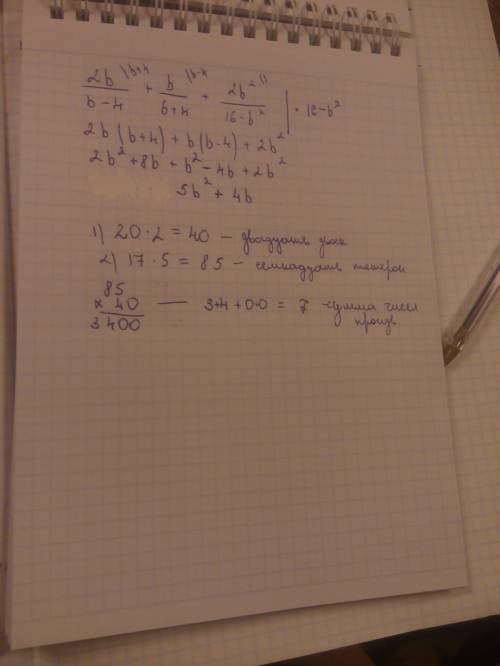 2b \b+4 / b-4 + b \b-4 / b+4 + 2b² \1 / 16-b² | · 16-b²
2b (b+4) + b(b-4) + 2b²
2b² + 8b + b² - 4b + 2b²
5b² + 4b
1) 20·2 = 40 - двадцать двоек
2) 17·5 = 85 - семнадцать пятерок
85
× 40 — 3+4+0+0 = 7 - сумма чисел
3400 произв.